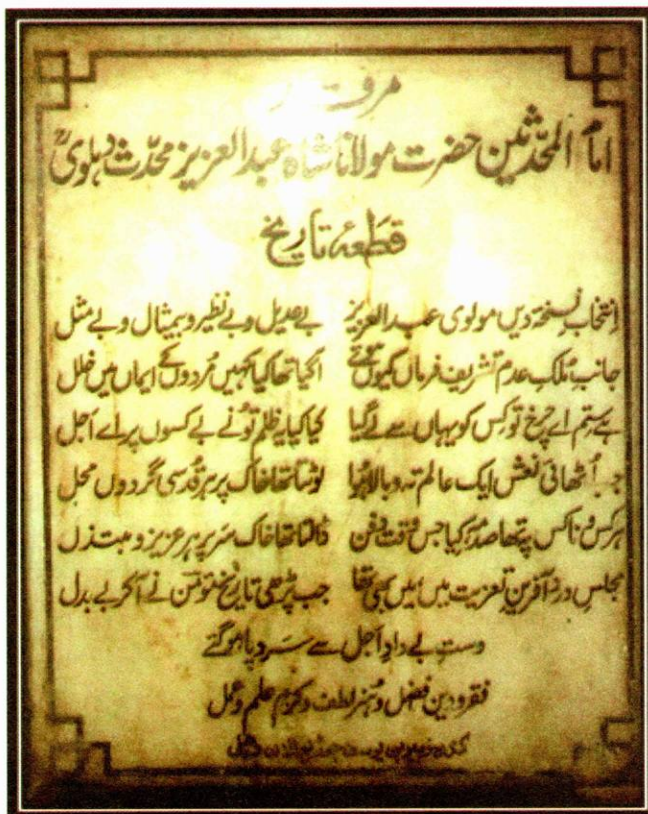 مرقد
امام المحدثین حضرت مولانا شاہ عبدالعزیز محدّث دہلویؒ
قطعۂ تاریخ
اِنتخابِ نسخۂ دیں مولوی عبدالعزیز بے عدیل و بے نظیر و بیمثال و بے مثل
جانبِ مُلکِ عدم تشریف فرما کیوں ہوئے آگیا تھا کیا کہیں مُردوں کے ایماں میں خلل
ہے سِتم اے چرخ تو کِس کو یہاں سے لے گیا کیا کیا یہ ظلم تُو نے بے کسوں پر اے اَجل
جب اُٹھائی نعش ایک عالم تہ و بالا ہُوا لوٹتا تھا خاک پر ہر قُدسی گردوں محل
ہر کس و ناکس پہ تھا صدمہ کیا جس وقت دفن ڈالتا تھا خاک سَر پر ہر عزیز و مبتذل
مجلسِ درد آفرینِ تعزیت میں مَیں بھی تھا جب پڑھی تاریخ مومن نے آکر بے بدل
دستِ بے دادِ اَجل سے سَر و پا ہو گئے
فقر و دین فضل و ہنر لطف و کرم علم و عمل